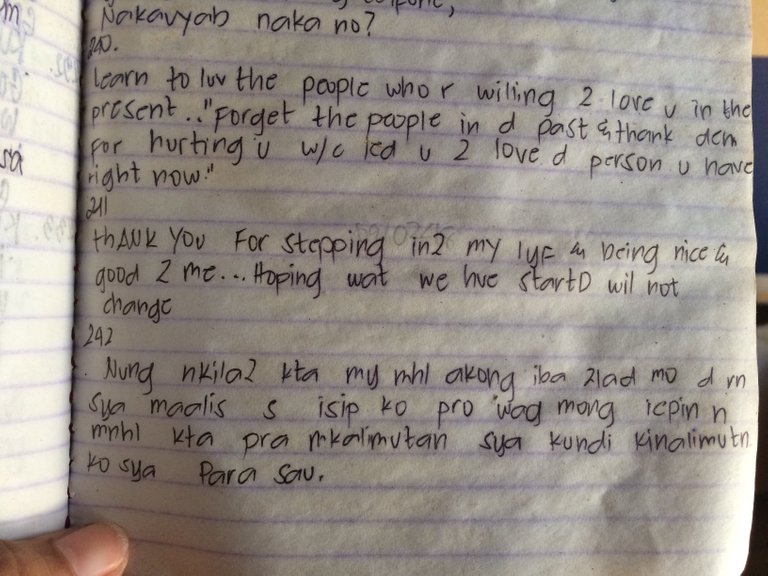 Nakavyab naka no?
240.
learn to luv the people who r willing 2 love u in the
present.."Forget the people in d past & thank dem
For hurting u w/c led u 2 love d person u have
right now."
241
thANK YOU For stepping in2 my lyF & being nice &
good 2 me...Hoping wat we hve startD wil not
change
242
. Nung nkila2 kta my mhl akong iba 2lad mo d rn
sya maalis s isip ko pro wag mong icpin n
mnhl kta pra mkalimutan sya kundi kinalimutn
ko sya Para sau.